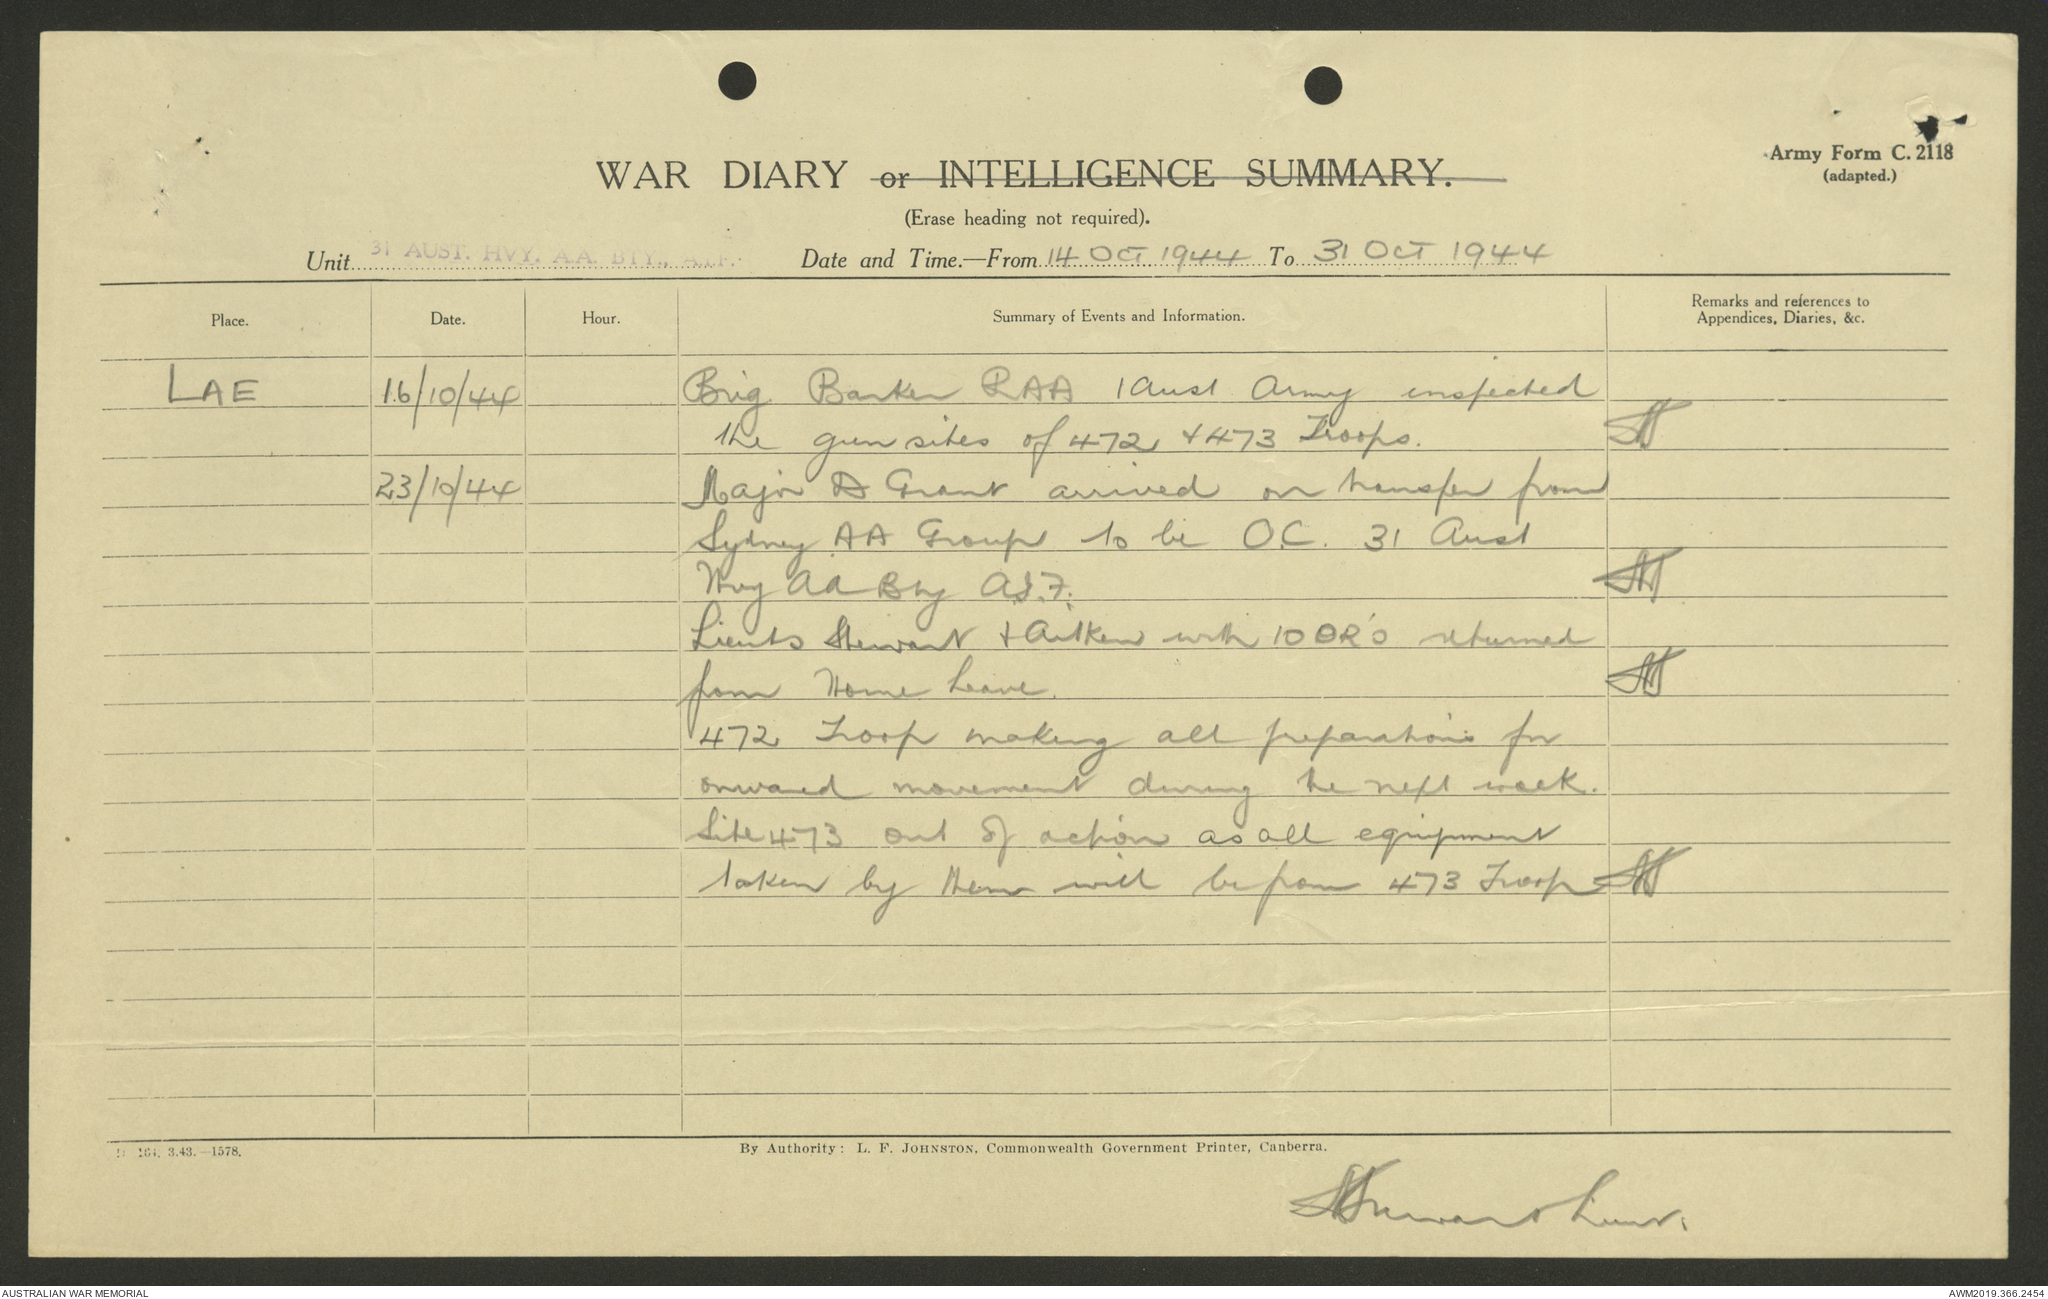 Army Form C. 2118
(adapted.)
WAR DIARY or INTELLIGENCE SUMMARY.
(Erase heading not required).
Unit 31 AUST. HVY. A.A. BTY., A.I.F. Date and Time.—From 14 OCT 1944 To 31 OCT 1944
Place. Date. Hour. Summary of Events and Information. Remarks and references to
Appendices, Diaries, &c.
LAE 16/10/44 Brig Barker RAA 1 Aust Army inspected
the gun sites of 472 & 473 Troops.
23/10/44 Major D Grant arrived on transfer from
Sydney AA Group to be O.C. 31 Aust
Hvy AA Bty A.I.F.
Lieuts Stewart & Aitken with 10 OR's returned
from Home Leave.
472 Troop making all preparations for
onward movement during the next week.
Site 473 out of action as all equipment
taken by them will be from 473 Troop
D 164. 3.43.—1578. By Authority: L. F. JOHNSTON, Commonwealth Government Printer, Canberra.
Stewart Lieut.
AUSTRALIAN WAR MEMORIAL AWM2019.366.2454